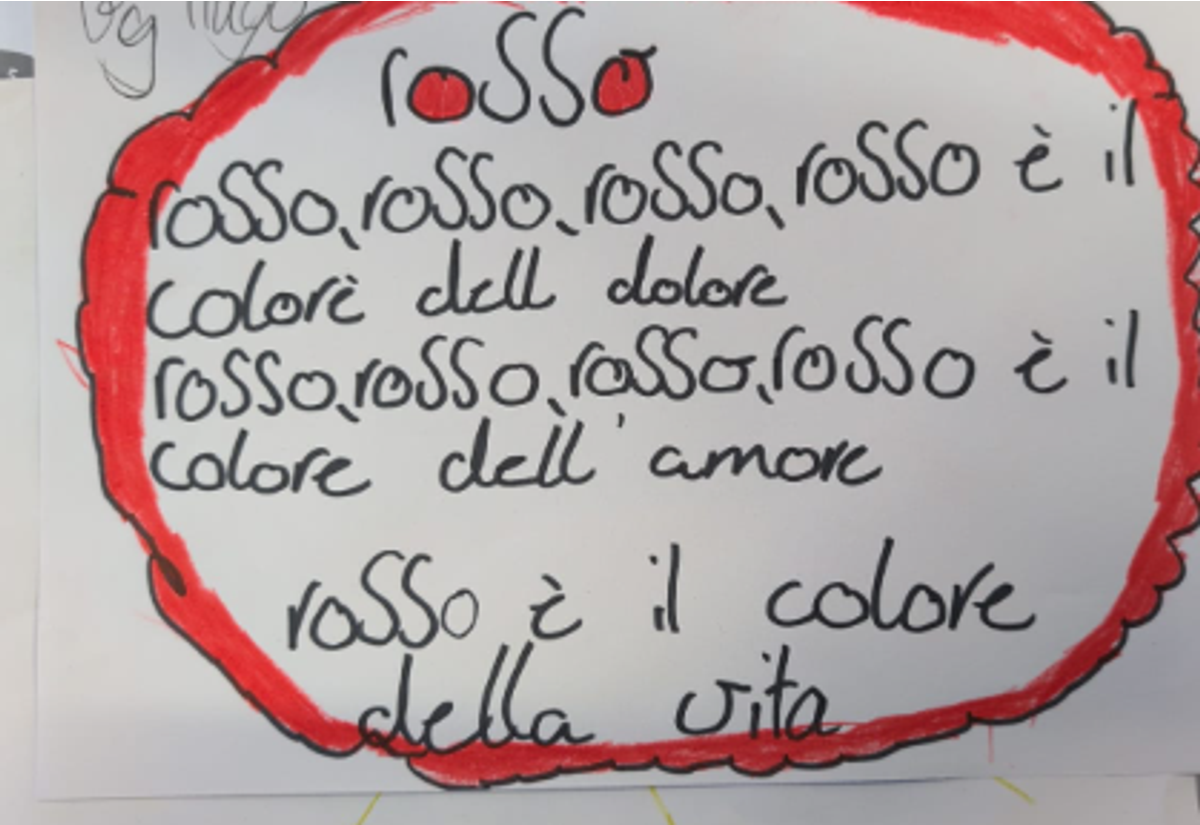 rosso
rosso, rosso, rosso, rosso è il
colorè dell dolore
rosso, rosso, rosso, rosso è il
colore dell' amore
rosso è il colore
della vita